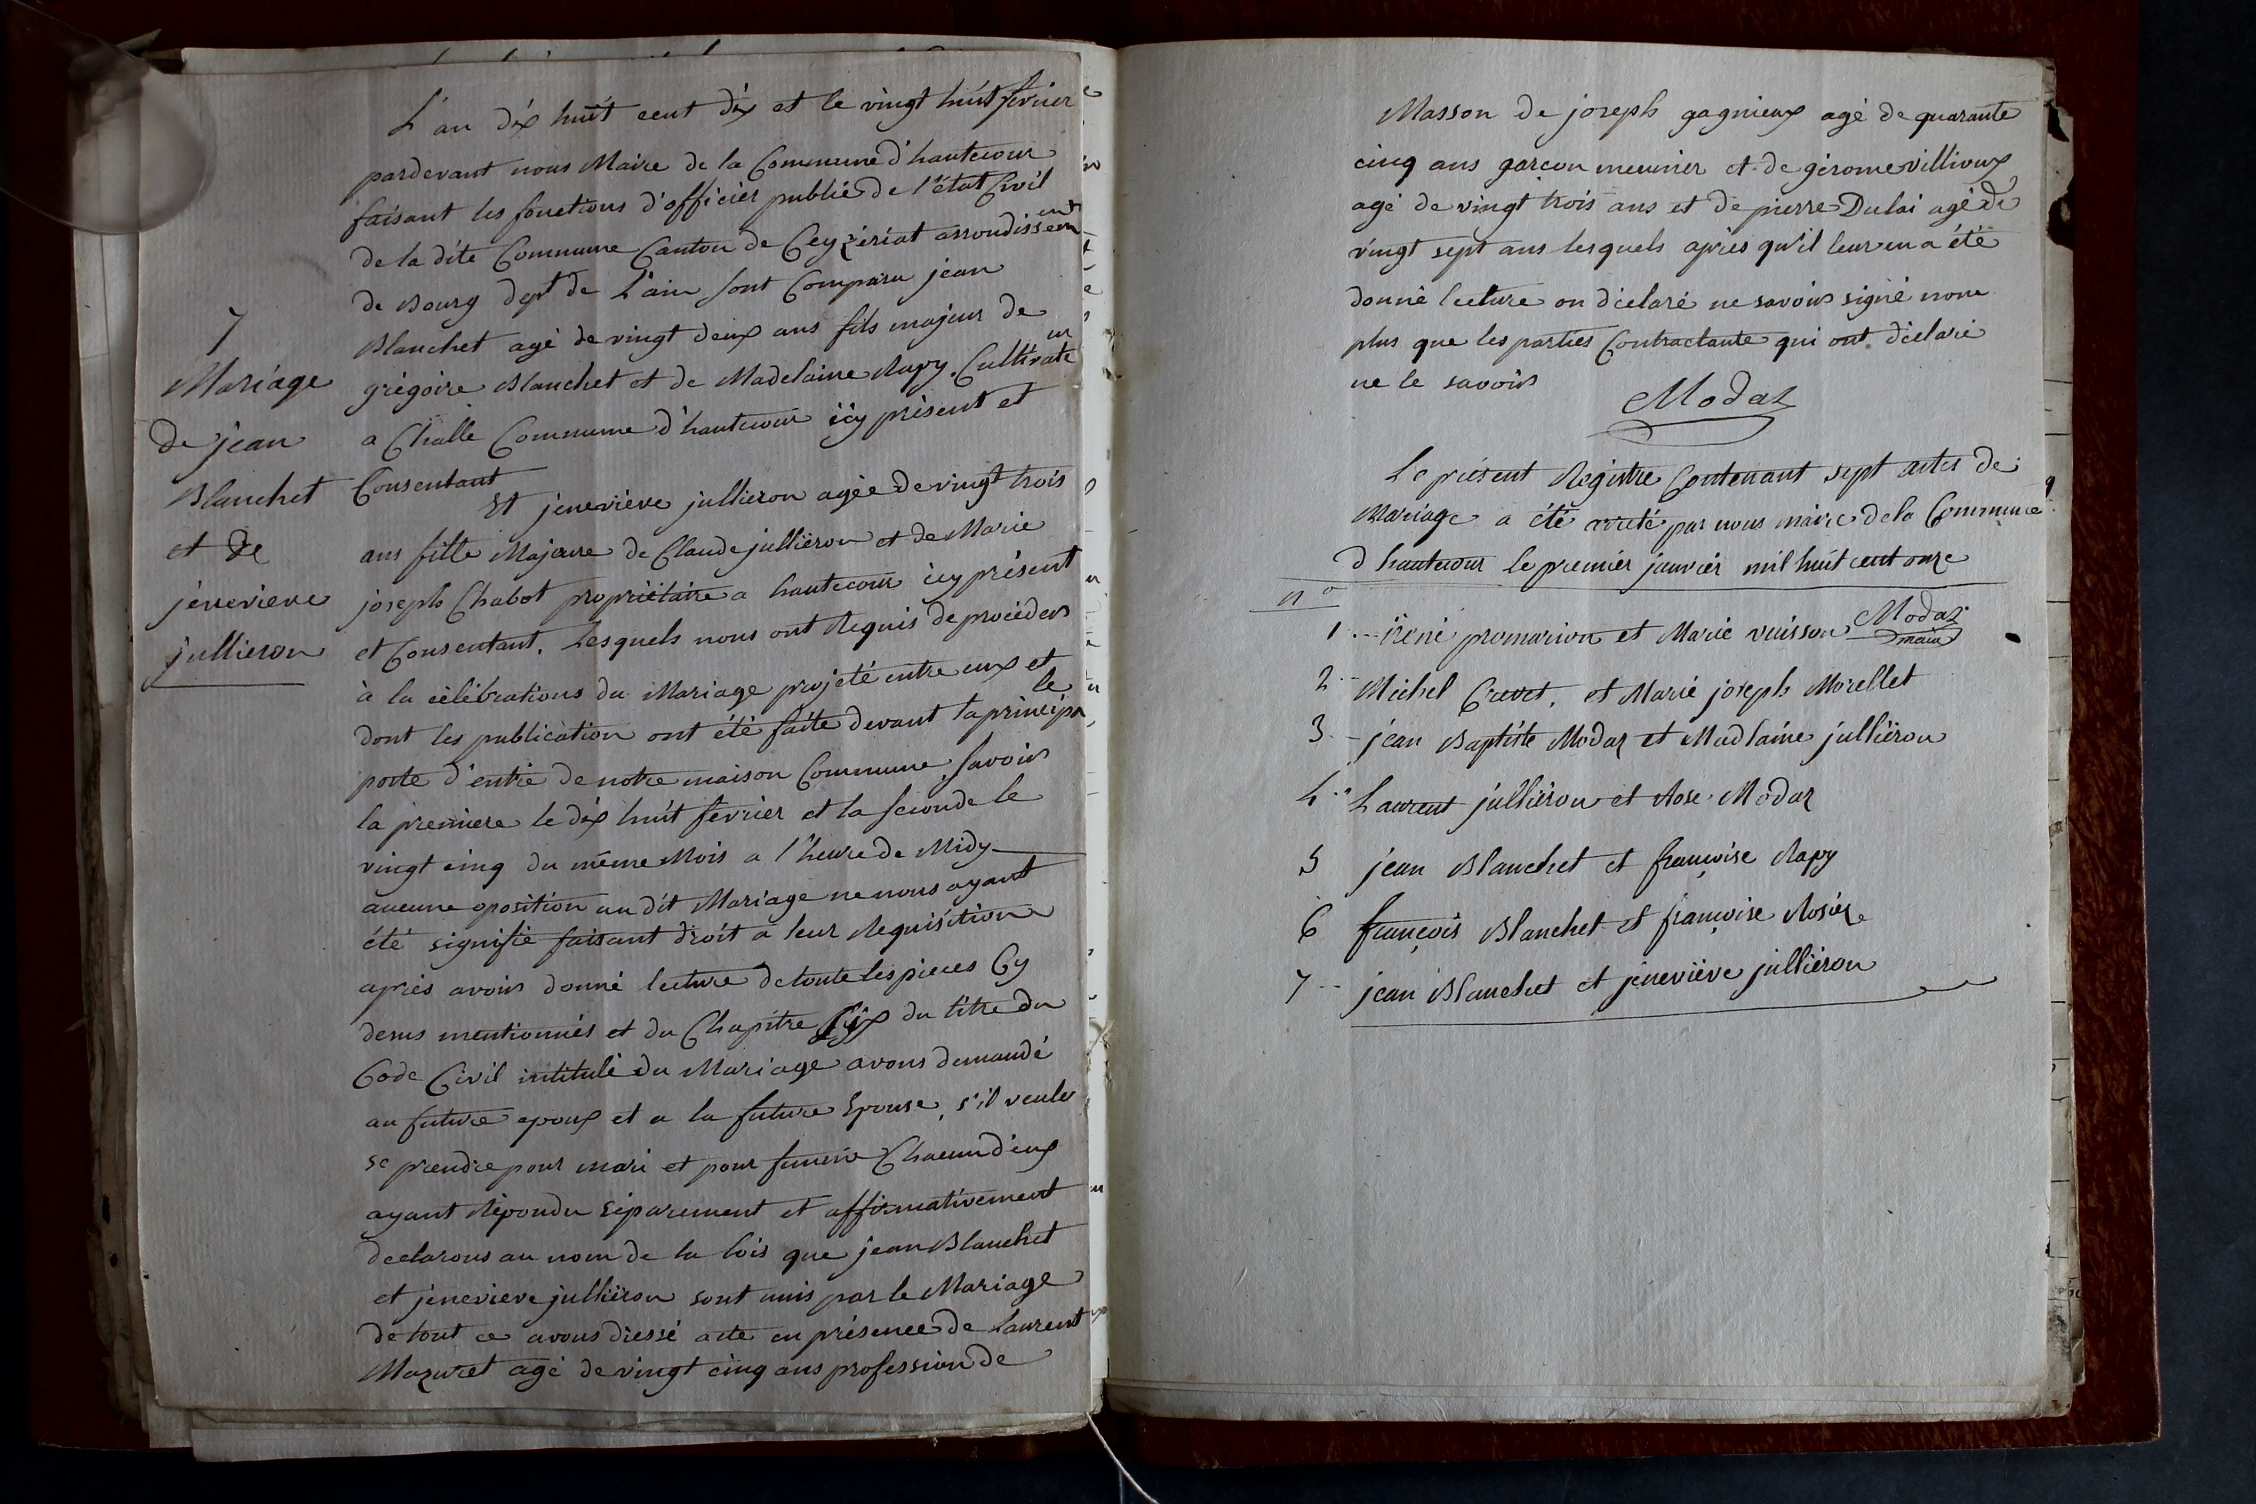 7
Mariage
de jean
Blanchet
et de
jeneviève
jullieron
L'an dix huit cent dix et le vingt huit fevrier
pardevant nous Maire de la Commune d'hautecour
faisant les fonctions d'officier public de l'état Civil
de la dite Commune Canton de Ceyzériat arrondissement
de Bourg dept de L'ain sont Comparu jean
Blanchet agé de vingt deux ans fils majeur de
grégoire Blanchet et de Madelaine Rapy Cultivateur
a Challe Commune d'hautecour icy présent et
Consentant
Et jeneviève jullieron agée de vingt trois
ans fille Majeure de Claude jullieron et de Marie
joseph Chabot propriétaire a hautecour icy présent
et Consentant. Lesquels nous ont Requis de procéder
à la célébrations du Mariage projeté entre eux et
dont les publication ont été faite devant la principale
porte d'entré de notre maison Commune, Savoir
la premiere le dix huit fevrier et la seconde le
vingt cinq du même Mois a l'heure de Midy
aucune oposition au dit Mariage ne nous ayant
été signifié faisant droit a leur Requisition
après avoir donné lecture de toute les pieces Cy
desus mentionnés et du Chapitre du titre du
Code Civil intitulé du Mariage avons demandé
au future epoux et a la future Epouse, s'il veule
se prendre pour mari et pour femme Chacun d'eux
ayant Répondu séparement et affirmativement
declarons au nom de la lois que jean Blanchet
et jenevieve jullieron sont unis par le Mariage
de tout ce avons dressé acte en présence de Laurent
Mazuret agé de vingt cinq ans profession de
Masson de joseph gagnieux agé de quarante
cinq ans garçon meunier et de gérome villioux
agé de vingt trois ans et de pierre Dulai agé de
vingt sept ans lesquels après qu'il leur en a été
donné lecture on déclaré ne savoir signé none
plus que les parties Contractante qui ont déclaré
ne le savoir
Modaz
Le présent Registre Contenant sept actes de
Mariage a été arreté par nous maire de la Commune
d hautecour le premier janvier mil huit cent onze
n°
Modaz
maire
1 iréné promarion et Marie vuisson
2 Michel Crevet, et Marie joseph Morellet
3 jean Baptiste Modaz et Madlaine jullieron
4 Laurent jullieron et Rose Modaz
5 jean Blanchet et françoise Rapy
6 françois Blanchet et françoise Rosier
7 jean Blanchet et jeneviève jullieron